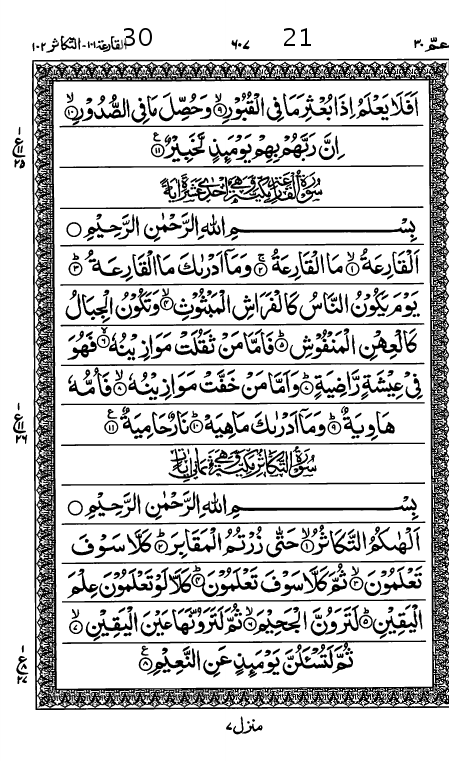 عمّ ٣٠ 21 ٦٠٧ 30 القارعة ١٠١-التكاثر ١٠٢
اَفَلَا يَعْلَمُ اِذَا بُعْثِرَ مَا فِى الْقُبُوْرِ ۙ﴿۹﴾ وَحُصِّلَ مَا فِى الصُّدُوْرِ ۙ﴿۱۰﴾
اِنَّ رَبَّهُمْ بِهِمْ يَوْمَئِذٍ لَّخَبِيْرٌ ﴿۱۱﴾ ع
ع ١١ ٢٥
سُوْرَةُ الْقَارِعَةِ مَكِّيَّةٌ وَّهِىَ اِحْدٰى عَشْرَةَ اٰيَةً
بِسْمِ اللهِ الرَّحْمٰنِ الرَّحِيْمِ ○
اَلْقَارِعَةُ ۙ﴿۱﴾ مَا الْقَارِعَةُ ۚ﴿۲﴾ وَمَاۤ اَدْرٰىكَ مَا الْقَارِعَةُ ؕ﴿۳﴾
يَوْمَ يَكُوْنُ النَّاسُ كَالْفَرَاشِ الْمَبْثُوْثِ ۙ﴿۴﴾ وَتَكُوْنُ الْجِبَالُ
كَالْعِهْنِ الْمَنْفُوْشِ ؕ﴿۵﴾ فَاَمَّا مَنْ ثَقُلَتْ مَوَازِيْنُهٗ ۙ﴿۶﴾ فَهُوَ
فِىْ عِيْشَةٍ رَّاضِيَةٍ ؕ﴿۷﴾ وَاَمَّا مَنْ خَفَّتْ مَوَازِيْنُهٗ ۙ﴿۸﴾ فَاُمُّهٗ
هَاوِيَةٌ ؕ﴿۹﴾ وَمَاۤ اَدْرٰىكَ مَا هِيَهْ ؕ﴿۱۰﴾ نَارٌ حَامِيَةٌ ﴿۱۱﴾ ع
ع ١١ ٢٦
سُوْرَةُ التَّكَاثُرِ مَكِّيَّةٌ وَّهِىَ ثَمَانِىْ اٰيَاتٍ
بِسْمِ اللهِ الرَّحْمٰنِ الرَّحِيْمِ ○
اَلْهٰىكُمُ التَّكَاثُرُ ۙ﴿۱﴾ حَتّٰى زُرْتُمُ الْمَقَابِرَ ؕ﴿۲﴾ كَلَّا سَوْفَ
تَعْلَمُوْنَ ۙ﴿۳﴾ ثُمَّ كَلَّا سَوْفَ تَعْلَمُوْنَ ؕ﴿۴﴾ كَلَّا لَوْ تَعْلَمُوْنَ عِلْمَ
الْيَقِيْنِ ؕ﴿۵﴾ لَتَرَوُنَّ الْجَحِيْمَ ۙ﴿۶﴾ ثُمَّ لَتَرَوُنَّهَا عَيْنَ الْيَقِيْنِ ۙ﴿۷﴾
ثُمَّ لَتُسْئَلُنَّ يَوْمَئِذٍ عَنِ النَّعِيْمِ ﴿۸﴾ ع
ع ٨ ٢٧
منزل ٧